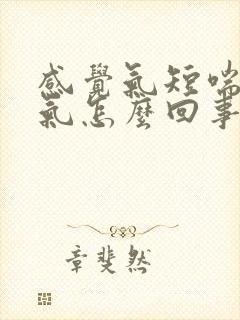 感覺氣短喘
氣怎麼回事
章斐然